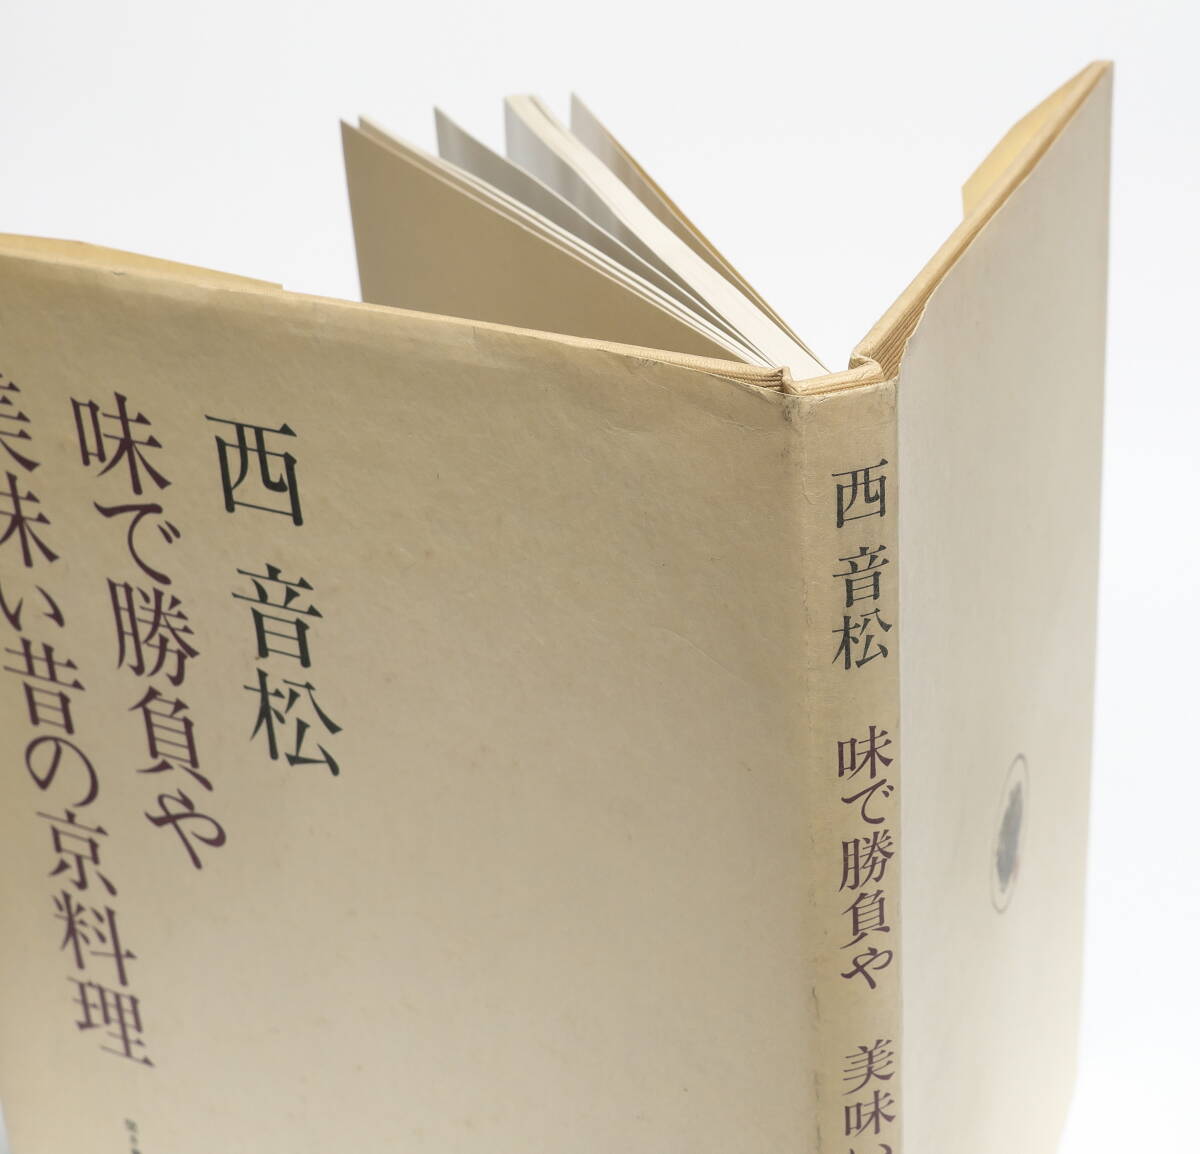 西 音松
味で勝負や
美味い昔の京料理
聞き
西 音松 味で勝負や 美味い